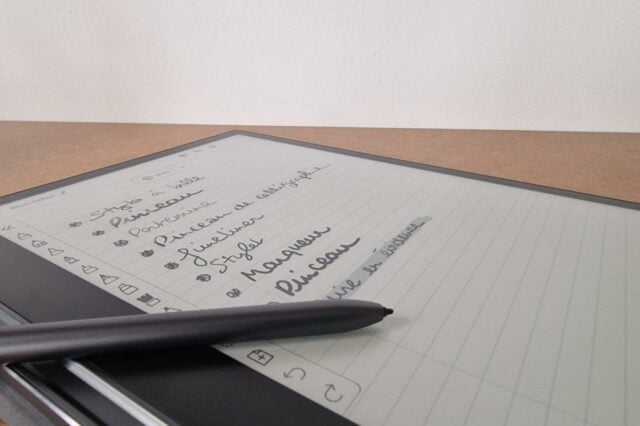 Stylo à bille
Pinceau
Portemine
Pinceau de calligraphie
Fineliner
Stylet
Marqueur
Pinceau
en évidence